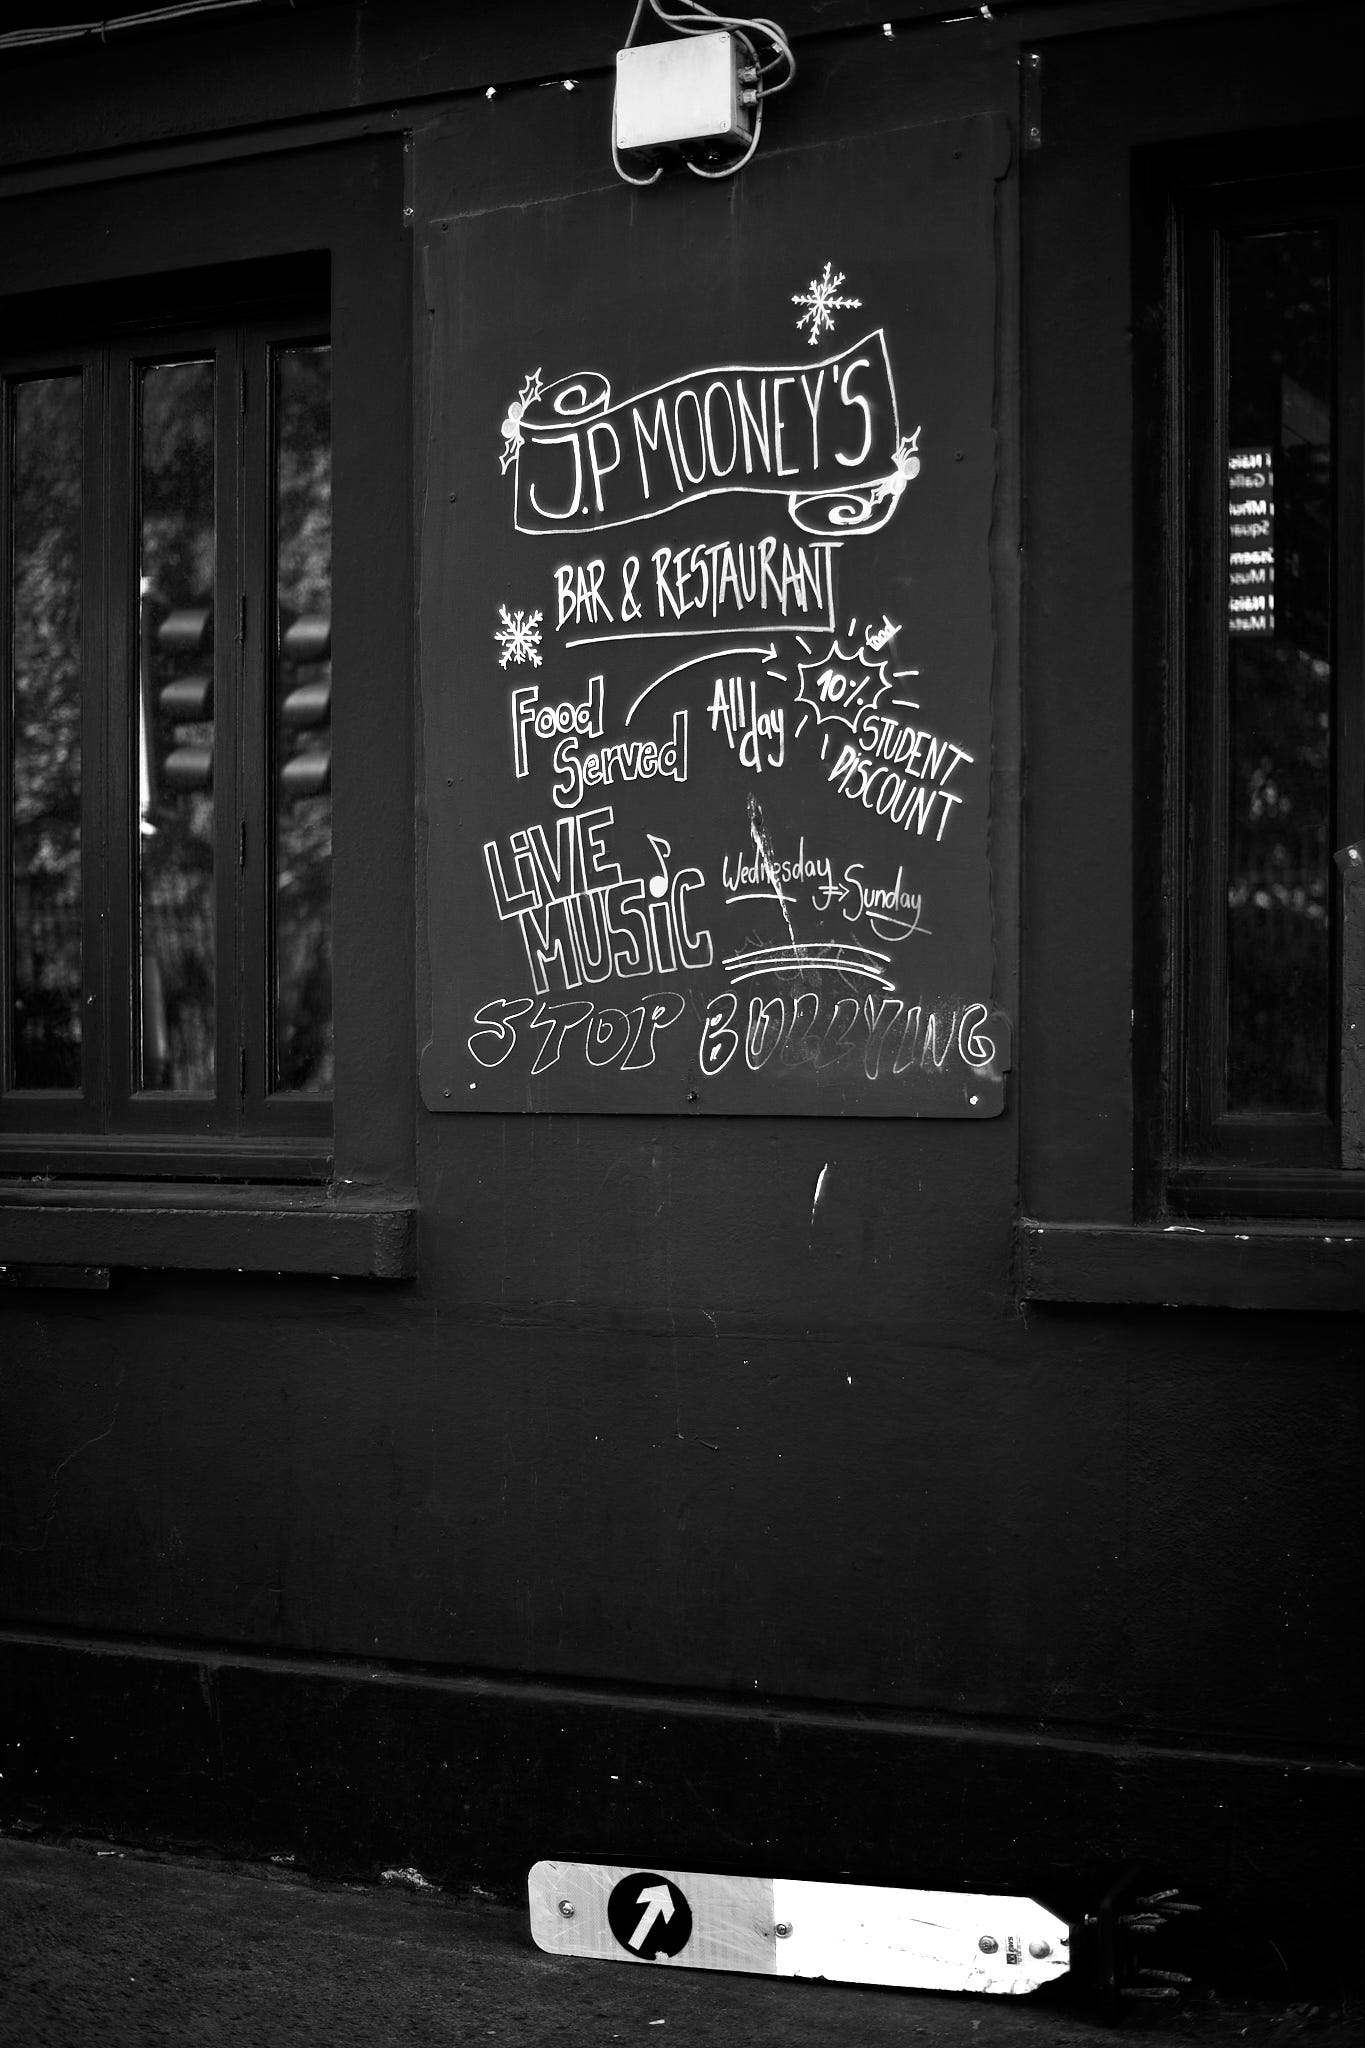 J.P MOONEY'S
BAR & RESTAURANT
Food
Served
All
day
food
10%
STUDENT
DISCOUNT
LiVE
MUSiC
Wednesday
Sunday
STOP BULLYING